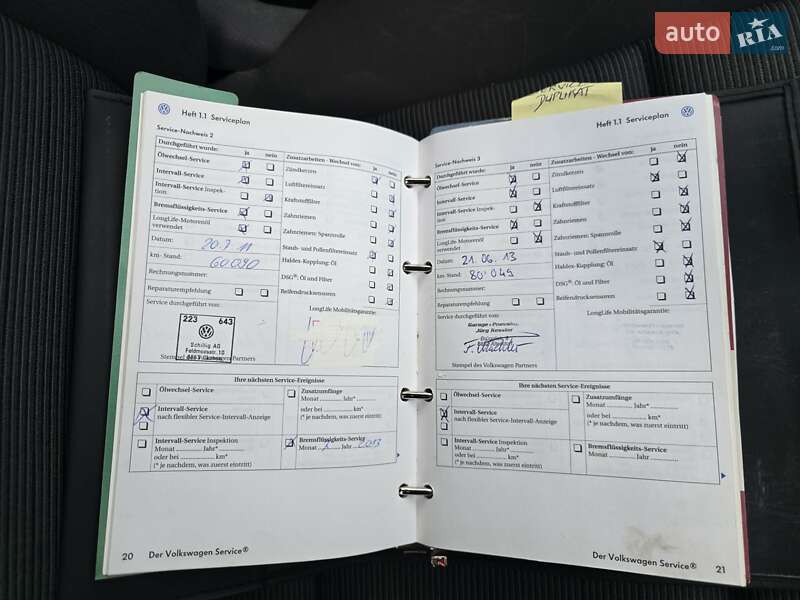 auto RIA.com
DUPLIKAT
Heft 1.1 Serviceplan
Service-Nachweis 2
Durchgeführt wurde: ja nein
Ölwechsel-Service
Intervall-Service
Intervall-Service Inspek-
tion
Bremsflüssigkeits-Service
LongLife-Motorenöl
verwendet
Datum: 20.7.11
km- Stand: 60090
Rechnungsnummer:
Reparaturempfehlung
Service durchgeführt von:
223 643
Schillig AG
Feldmoosstr. 12
Stempel des Volkswagen Partners
Zusatzarbeiten - Wechsel von: ja nein
Zündkerzen
Luftfiltereinsatz
Kraftstofffilter
Zahnriemen
Zahnriemen: Spannrolle
Staub- und Pollenfiltereinsatz
Haldex-Kupplung: Öl
DSG®: Öl und Filter
Reifendrucksensoren
LongLife Mobilitätsgarantie:
Ihre nächsten Service-Ereignisse
Ölwechsel-Service
Intervall-Service
nach flexibler Service-Intervall-Anzeige
Intervall-Service Inspektion
Monat ............ Jahr*............
oder bei ............ km*
(* je nachdem, was zuerst eintritt)
Zusatzumfänge
Monat ............ Jahr*............
oder bei ............ km*
(* je nachdem, was zuerst eintritt)
Bremsflüssigkeits-Service
Monat ............ Jahr 2013
20 Der Volkswagen Service®
Heft 1.1 Serviceplan
Service-Nachweis 3
Durchgeführt wurde: ja nein
Ölwechsel-Service
Intervall-Service
Intervall-Service Inspek-
tion
Bremsflüssigkeits-Service
LongLife-Motorenöl
verwendet
Datum: 21.06.13
km- Stand: 80'049
Rechnungsnummer:
Reparaturempfehlung
Service durchgeführt von:
Jürg Kessler
Stempel des Volkswagen Partners
Zusatzarbeiten - Wechsel von: ja nein
Zündkerzen
Luftfiltereinsatz
Kraftstofffilter
Zahnriemen
Zahnriemen: Spannrolle
Staub- und Pollenfiltereinsatz
Haldex-Kupplung: Öl
DSG®: Öl und Filter
Reifendrucksensoren
LongLife Mobilitätsgarantie:
Ihre nächsten Service-Ereignisse
Ölwechsel-Service
Intervall-Service
nach flexibler Service-Intervall-Anzeige
Intervall-Service Inspektion
Monat ............ Jahr*............
oder bei ............ km*
(* je nachdem, was zuerst eintritt)
Zusatzumfänge
Monat ............ Jahr*............
oder bei ............ km*
(* je nachdem, was zuerst eintritt)
Bremsflüssigkeits-Service
Monat ............ Jahr ............
Der Volkswagen Service® 21